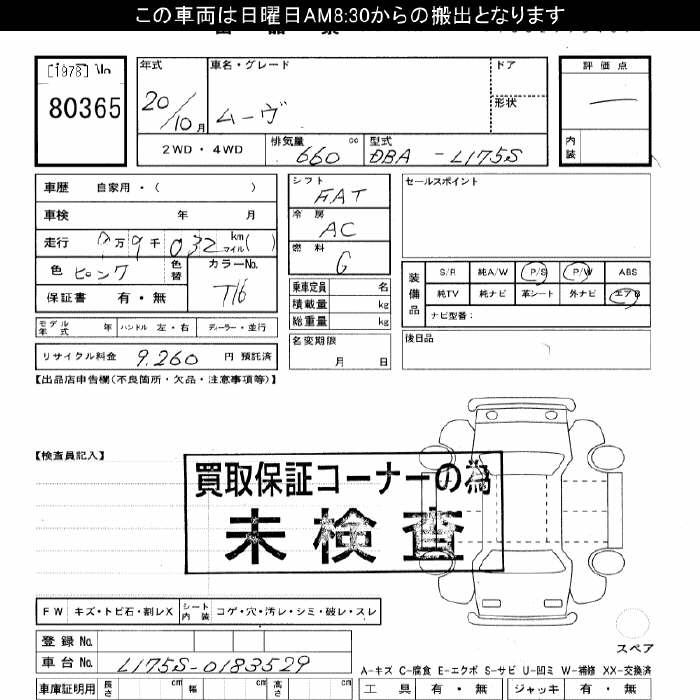 この車両は日曜日AM8:30からの搬出となります
[1978] No
80365
年式 車名・グレード ドア 評価点
20/10月 ムーヴ 形状
2WD・4WD 排気量 660 cc 型式 DBA-L175S 内装
車歴 自家用・( )
車検 年 月
走行 万9千032 km マイル( )
色 ピンク 色替 カラーNo. T16
保証書 有・無
モデル年式 年 ハンドル 左・右 ディーラー・並行
リサイクル料金 9,260 円 預託済
シフト FAT
冷房 AC
燃料 G
乗車定員 名
積載量 kg
総重量 kg
名変期限
月 日
セールスポイント
装備品 S/R 純A/W P/S P/W ABS
純TV 純ナビ 革シート 外ナビ エアB
ナビ型番:
後日品
【出品店申告欄(不良箇所・欠品・注意事項等)】
【検査員記入】
買取保証コーナーの為
未検査
FW キズ・トビ石・割レX シート内装 コゲ・穴・汚レ・シミ・破レ・スレ
スペア
登録 No.
車台 No. L175S-0183529
A-キズ C-腐食 E-エクボ S-サビ U-凹ミ W-補修 XX-交換済
車庫証明用 長さ cm 幅 cm 高さ cm 工具 有・無 ジャッキ 有・無